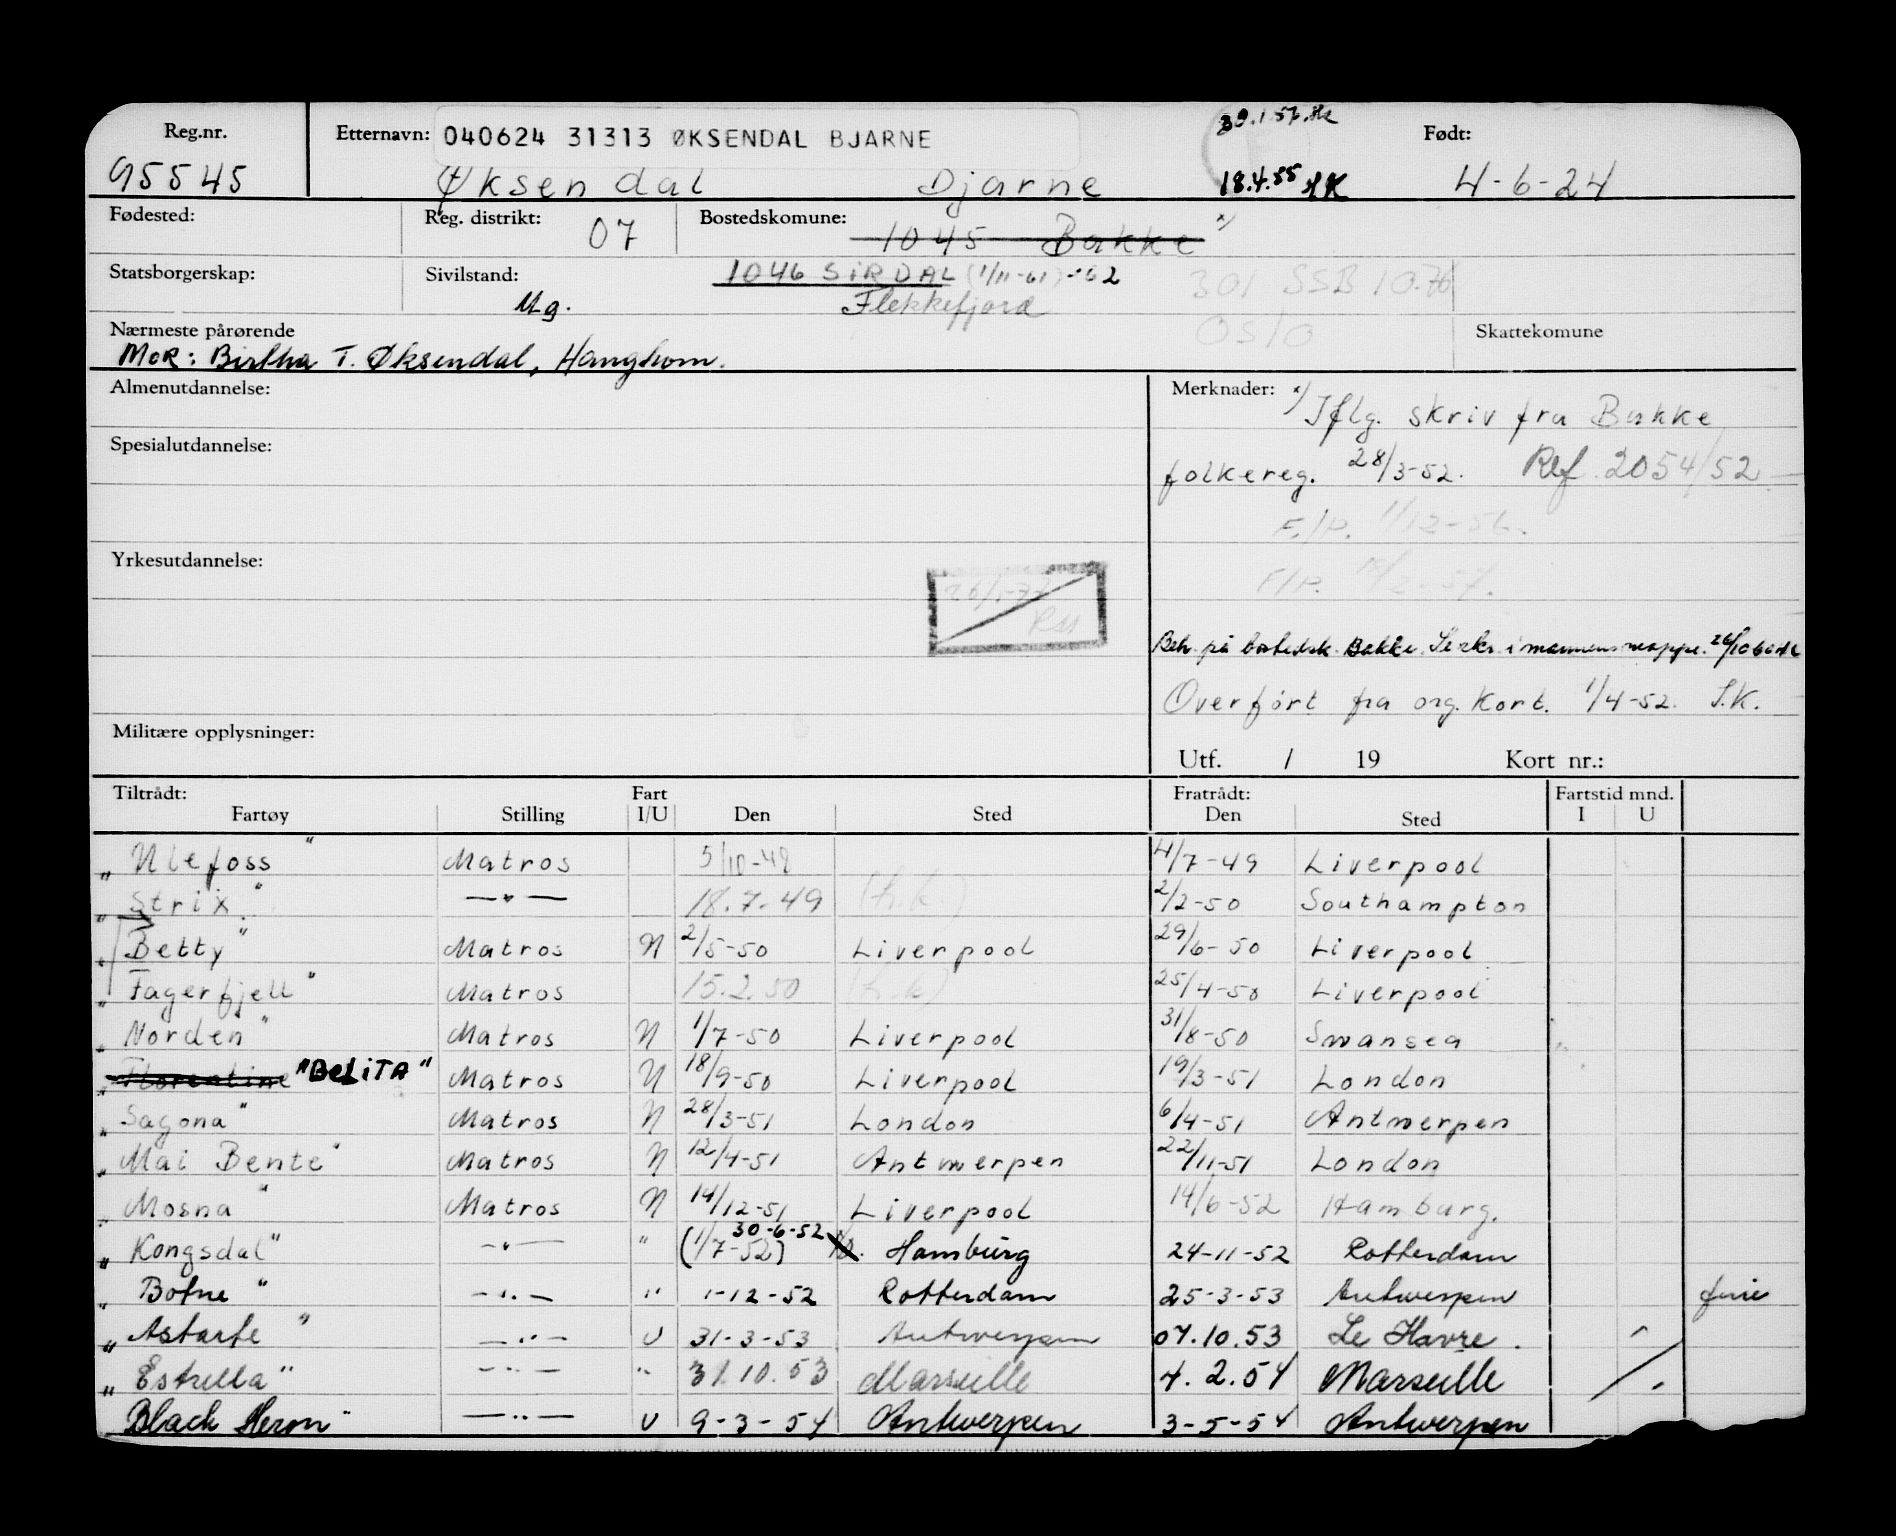 Reg.nr. Etternavn: 040624 31313 ØKSENDAL BJARNE Født:
95545 Øksendal Bjarne 18.4.55 HK 4-6-24
Fødested: Reg. distrikt: 07 Bostedskomune: 1045 Bakke x)
Statsborgerskap: Sivilstand: Ug. 1046 SIRDAL (1/11-61)-62 301 SSB 10.76
Flekkefjord Oslo
Nærmeste pårørende Skattekomune
MOR: Birtha T. Øksendal, Haughom.
Almenutdannelse: Merknader: x) Iflg. skriv fra Bakke
Spesialutdannelse: folkereg. 28/3-52. Ref. 2054/52
F./P. 1/12-56.
Yrkesutdannelse: F/P.
Bakke
Overført fra org. kort. 1/4-52. S.K.
Militære opplysninger: Utf. / 19 Kort nr.:
Tiltrådt: Fart Fratrådt: Fartstid mnd.
Fartøy Stilling I/U Den Sted Den Sted I U
"Ulefoss" Matros 5/10-48 4/7-49 Liverpool
"Strix" —"— 18.7.49 (h.k) 2/2-50 Southampton
"Betty" Matros N 2/5-50 Liverpool 29/6-50 Liverpool
"Fagerfjell" Matros 15.2.50 (h.k) 25/4-50 Liverpool
"Norden" Matros N 1/7-50 Liverpool 31/8-50 Swansea
"Florentine "BELITA" Matros N 18/9-50 Liverpool 19/3-51 London
"Sagona" Matros N 28/3-51 London 6/4-51 Antwerpen
"Mai Bente" Matros N 12/4-51 Antwerpen 22/11-51 London
"Mosna" Matros N 14/12-51 Liverpool 14/6-52 Hamburg.
"Kongsdal" —"— " (1/7-52) 30-6-52 Hamburg 24-11-52 Rotterdam
"Botne" —"— " 1-12-52 Rotterdam 25-3-53 Antwerpen
"Astarte" —"— U 31-3-53 Antwerpen 07.10.53 Le Havre.
"Estrella" —"— " 31.10.53 Marseille 4.2.54 Marseille
Black Heron" —"— U 9-3-54 Antwerpen 3-5-54 Antwerpen